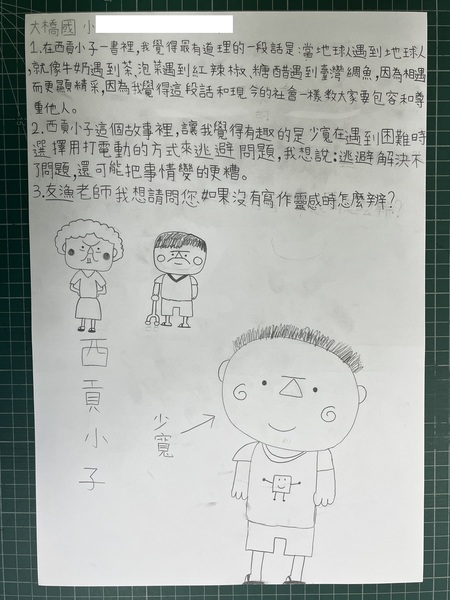 大橋國 小
1.在西貢小子一書裡,我覺得最有道理的一段話是:當地球人遇到地球人
,就像牛奶遇到茶、泡菜遇到紅辣椒、糖醋遇到臺灣鯛魚,因為相遇
而更顯精采,因為我覺得這段話和現今的社會一樣教大家要包容和尊
重他人。
2.西貢小子這個故事裡,讓我覺得有趣的是少寬在遇到困難時
選擇用打電動的方式來逃避問題,我想說:逃避解決不
了問題,還可能把事情變的更糟。
3.友漁老師我想請問您如果沒有寫作靈感時怎麼辦?
西貢小子
少寬